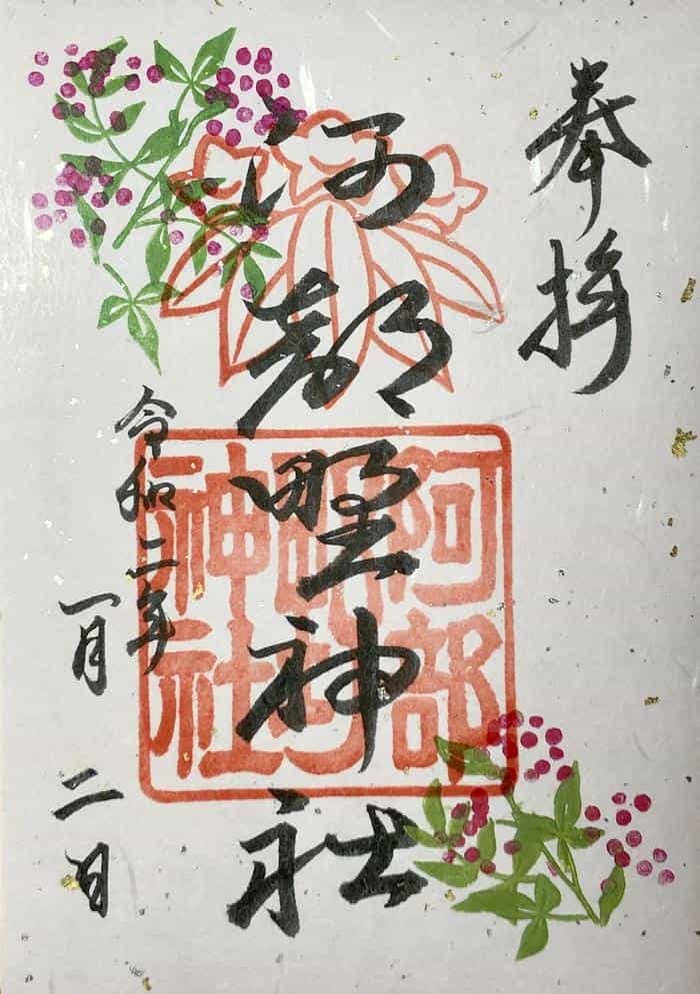 奉拝
阿部野神社
令和二年
一月
二日
阿部
神社